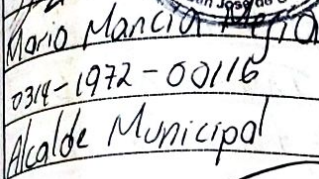 San José de C
Mario Mancía Mejía
0314-1972-00116
Alcalde Municipal